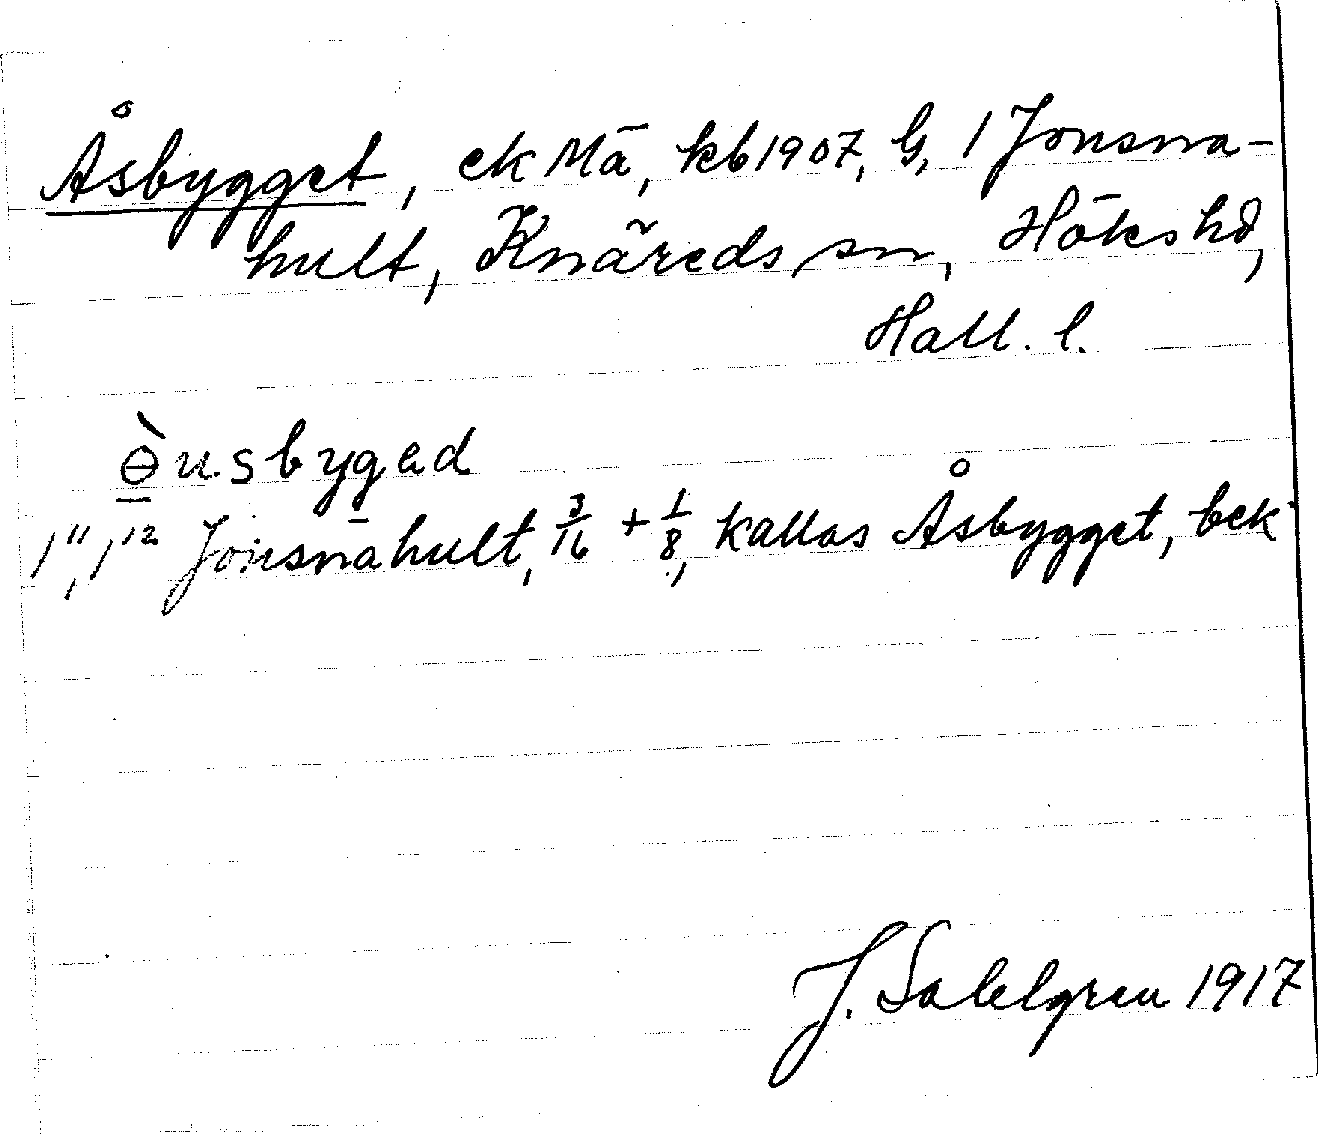 Åsbygget, ek Mä, kb 1907, G, 1 Jonsna-
hult, Knäreds sn, Höks hd,
Hall. l.
ɵ̀usbygəd
1¹¹, 1¹² Jonsnahult, 3/16 + 1/8, kallas Åsbygget, bek
J. Sahlgren 1917